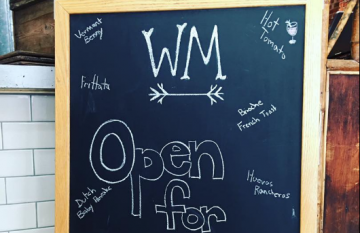 Vermont
Berry
Hot
Tomato
WM
Frittata
Brioche
French Toast
Open
for
Huevos
Rancheros
Dutch
Baby Pancake